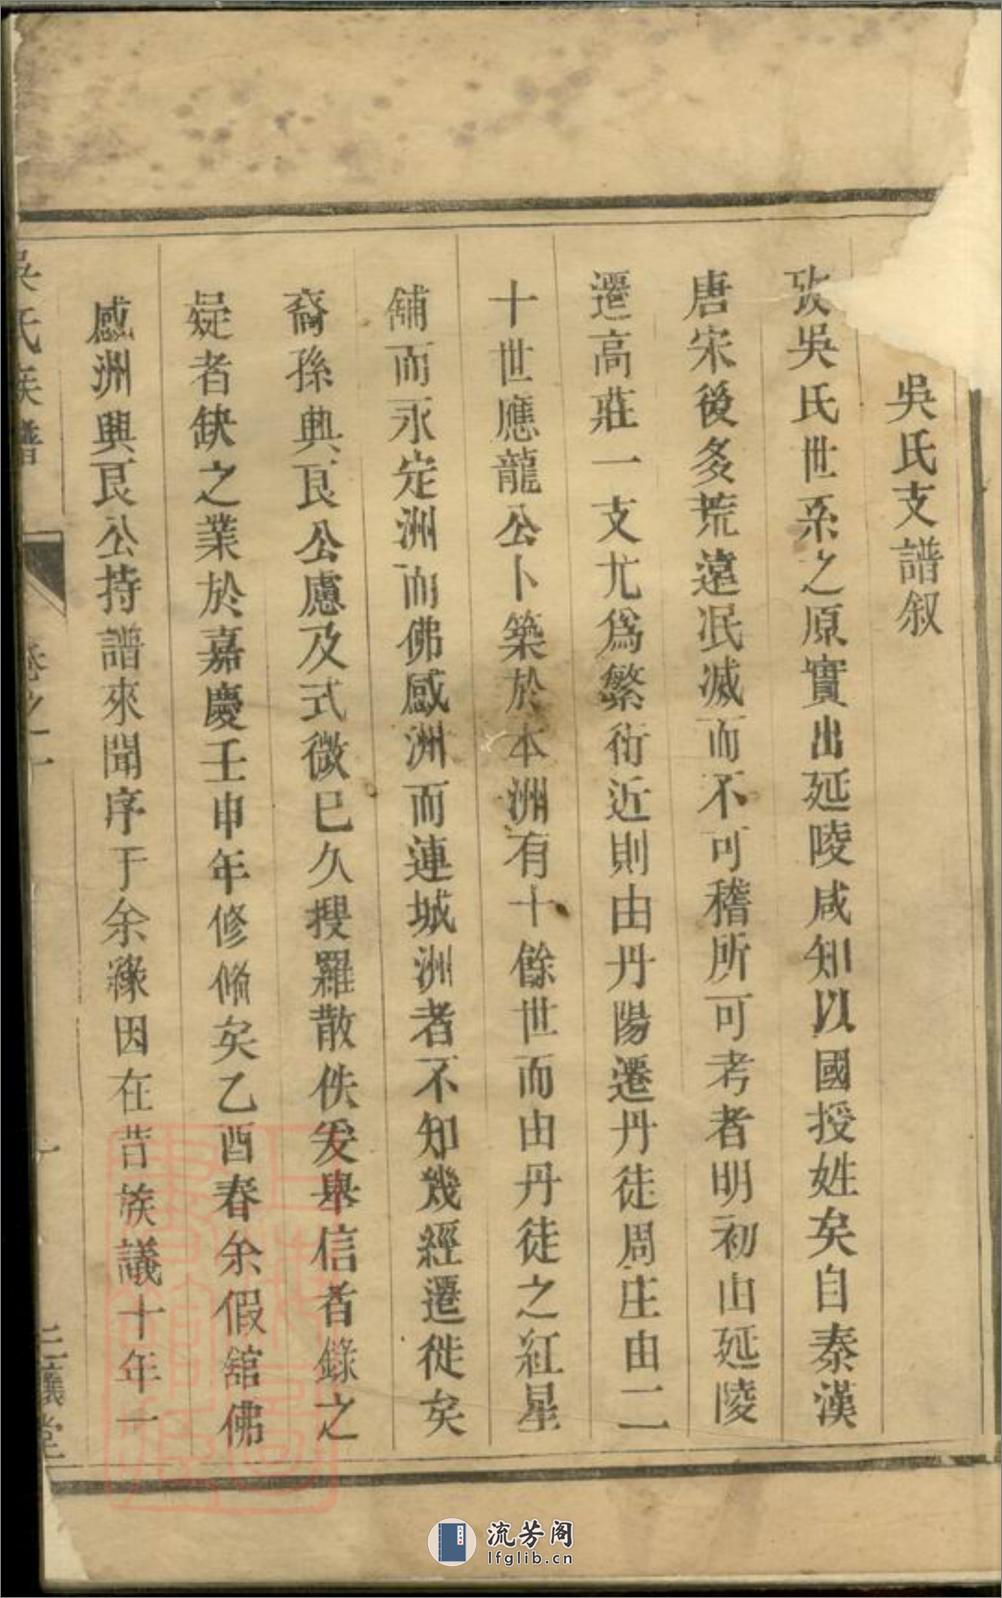 吳氏支譜叙
攷吳氏世系之原實出延陵咸知以國授姓矣自秦漢
唐宋後多荒遠泯滅而不可稽所可考者明初由延陵
遷高莊一支尤爲繁衍近則由丹陽遷丹徒周庄由二
十世應龍公卜築於本洲有十餘世而由丹徒之紅星
舖而永定洲而佛感洲而蓮城洲者不知幾經遷徙矣
裔孫興艮公慮及式微巳久搜羅散佚爰舉信者錄之
疑者缺之業於嘉慶壬申年修矣乙酉春余假舘佛
感洲興艮公持譜來聞序于余緣因在昔族議十年一
吳氏族譜
卷之一
三讓堂
流芳阁
lfglib.cn